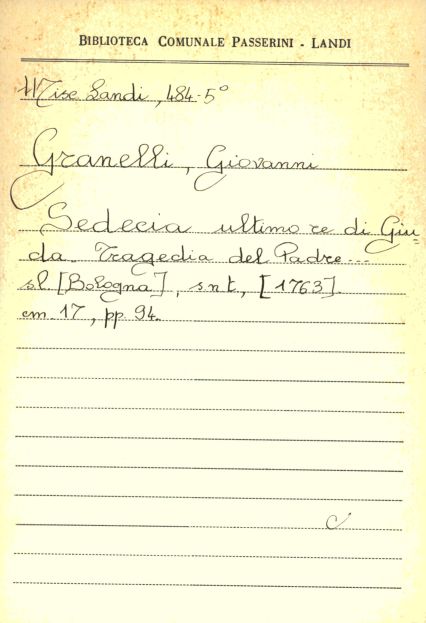 BIBLIOTECA COMUNALE PASSERINI - LANDI
Misc Landi, 484-5°
Granelli, Giovanni
Sedecia ultimo re di Giu=
da. Tragedia del Padre...
s.l. [Bologna], s n t, [1763].
cm. 17, pp. 94.
c